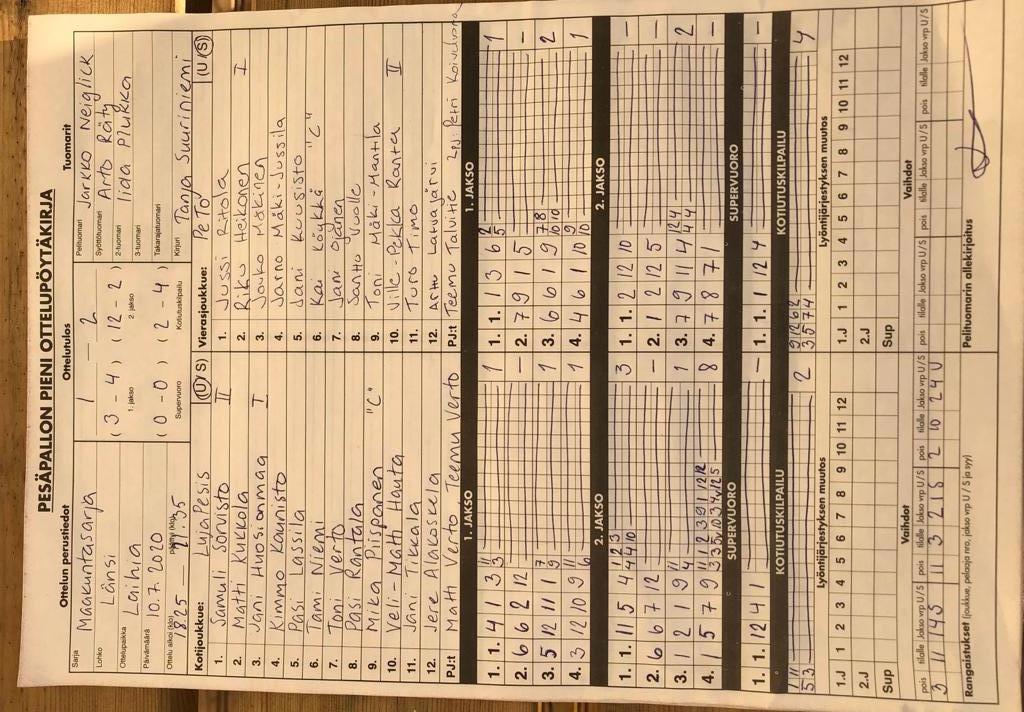 PESÄPALLON PIENI OTTELUPÖYTÄKIRJA
Ottelun perustiedot
Sarja Maakuntasarja
Lohko Länsi
Ottelupaikka Laihia
Päivämäärä 10.7.2020
Ottelu alkoi (klo) 18.25 päättyi (klo) 21.35
Ottelutulos
1 — 2
(3 - 4) (12 - 2)
1. jakso 2. jakso
(0 - 0) (2 - 4)
Supervuoro Kotiutuskilpailu
Tuomarit
Pelituomari Jarkko Neiglick
Syöttötuomari Arto Räty
2-tuomari Iida Plukka
3-tuomari
Takarajatuomari
Kirjuri Tanja Suuriniemi
Kotijoukkue: LujaPesis (U S)
1. Samuli Sorvisto II
2. Matti Kukkola
3. Jani Huosionmaa I
4. Kimmo Kaunisto
5. Pasi Lassila
6. Tami Niemi
7. Toni Verto
8. Pasi Rantala
9. Mika Piispanen "C"
10. Veli-Matti Hauta
11. Jani Tikkala
12. Jere Alakoskela
PJ:t Matti Verto Teemu Verto
Vierasjoukkue: PeTo (U S)
1. Jussi Ritola
2. Riku Heikonen I
3. Jouko Mäkinen
4. Jano Mäki-Jussila
5. Jani Kuusisto
6. Kai Köykkä "C"
7. Jani Ojanen
8. Santtu Vuolle
9. Toni Mäki-Mantila
10. Ville-Pekka Ranta II
11. Turo Timo
12. Arttu Latvajärvi
PJ:t Teemu Talvitie 2pj: Petri Koivuluoma
1. JAKSO
1. 1. 4 1 3 1
2. 6 6 2 12 —
3. 5 12 11 1 1
4. 3 12 10 9 1
1. JAKSO
1. 1. 1 3 6 1
2. 7 9 1 5 —
3. 6 6 1 9 2
4. 4 6 1 10 1
2. JAKSO
1. 1. 11 5 4 3
2. 6 6 7 12 —
3. 1 2 1 9 1
4. 1 5 7 9 8
2. JAKSO
1. 1. 2 12 10 —
2. 1 2 12 5 —
3. 7 9 11 4 2
4. 7 8 7 1 —
SUPERVUORO
1. 1. 12 4 1 —
SUPERVUORO
1. 1. 1 12 4 —
KOTIUTUSKILPAILU
2
KOTIUTUSKILPAILU
4
Lyöntijärjestyksen muutos
1 2 3 4 5 6 7 8 9 10 11 12
1.J
2.J
Sup
Lyöntijärjestyksen muutos
1 2 3 4 5 6 7 8 9 10 11 12
1.J
2.J
Sup
Vaihdot
pois tilalle Jakso vrp U/S pois tilalle Jakso vrp U/S pois tilalle Jakso vrp U/S
3 11 1 4 S 11 3 2 1 S 2 10 2 4 U
Vaihdot
pois tilalle Jakso vrp U/S pois tilalle Jakso vrp U/S pois tilalle Jakso vrp U/S
Rangaistukset (joukkue, pelaaja nro, jakso vrp U / S ja syy)
Pelituomarin allekirjoitus